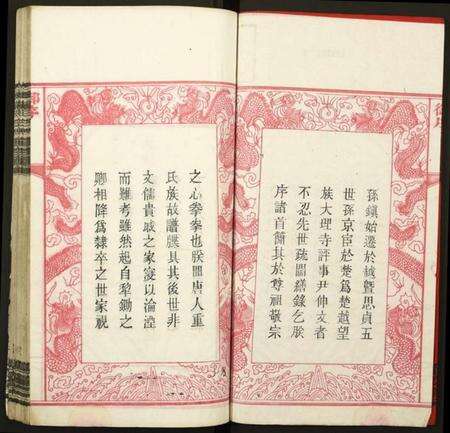 孫鎮始遷於城曁思貞五
世孫京宦於楚爲楚越望
族大理寺評事尹伸文者
不忍先世疏闊繕錄乞朕
序諸首簡其於尊祖敬宗
之心拳拳也朕聞唐人重
氏族故譜牒具其後世非
文儒貴戚之家寖以淪湮
而難考雖然起自犁鋤之
卿相降爲隸卒之世家視